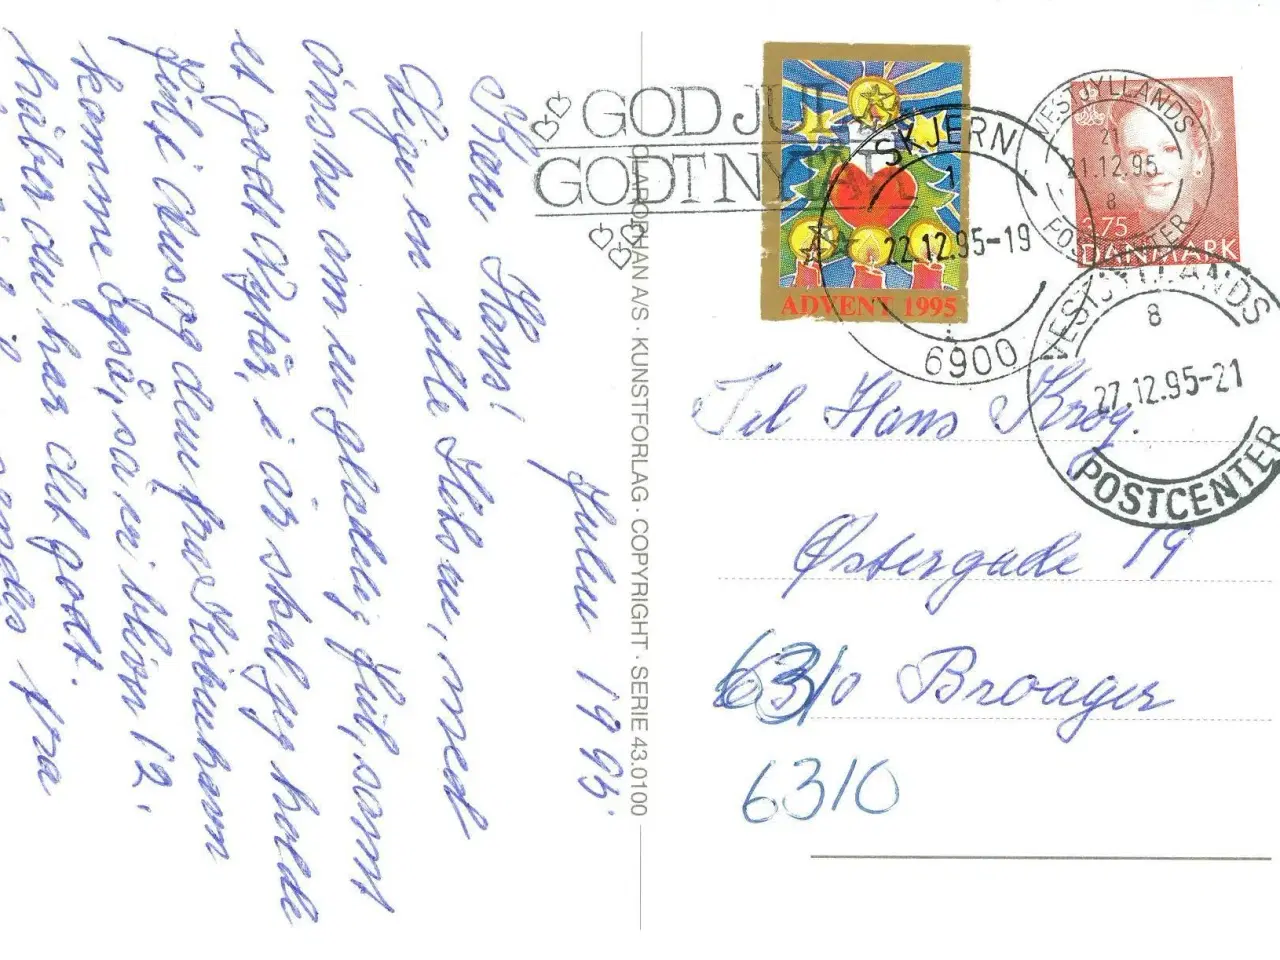 Julen 1995.
Kære Hans!
Lige en lille Hilsen, med
ønske om en glædelig Jul, samt
et godt Nytår, i år skal jeg holde
Jul i Aus og dem fra København
kommer også, så vi bliver 12.
håber du har det godt.
fra
GOD JUL
GODT NYTÅR
ADVENT 1995
SKJERN
1
22.12.95-19
6900
VESTJYLLANDS
21
21.12.95
8
POSTCENTER
3.75
DANMARK
VESTJYLLANDS
8
27.12.95-21
POSTCENTER
Til Hans Krog.
Østergade 19
6310 Broager
6310
KUNSTFORLAG · COPYRIGHT · SERIE 43.0100